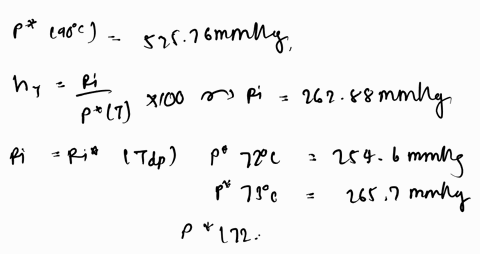 P* (90°C) = 525.76 mmHg,
hγ = Pi / P*(T) ×100 ⇝ Pi = 262.88 mmHg
Pi = Pi* (Tdp) P* 72°C = 254.6 mmHg
P* 73°C = 265.7 mmHg
P* (72.